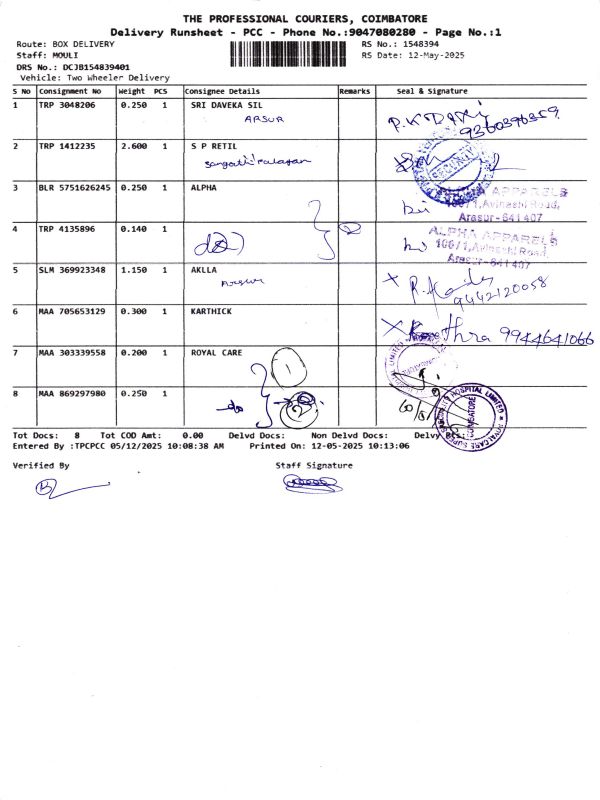 THE PROFESSIONAL COURIERS, COIMBATORE
Delivery Runsheet - PCC - Phone No.:9047080280 - Page No.:1
Route: BOX DELIVERY RS No.: 1548394
Staff: MOULI RS Date: 12-May-2025
DRS No.: DCJB154839401
Vehicle: Two Wheeler Delivery
S No Consignment No Weight PCS Consignee Details Remarks Seal & Signature
1 TRP 3048206 0.250 1 SRI DAVEKA SIL
ARSUR 9360396359
2 TRP 1412235 2.600 1 S P RETIL
3 BLR 5751626245 0.250 1 ALPHA ALPHA APPARELS
100/1,Avinashi Road,
Arasur-641407
4 TRP 4135896 0.140 1 ALPHA APPARELS
100/1,Avinashi Road,
Arasur-641407
5 SLM 369923348 1.150 1 AKLLA
Arasur 9442120058
6 MAA 705653129 0.300 1 KARTHICK
9944641066
7 MAA 303339558 0.200 1 ROYAL CARE
1
8 MAA 869297980 0.250 1
do 2
Tot Docs: 8 Tot COD Amt: 0.00 Delvd Docs: Non Delvd Docs:
Entered By :TPCPCC 05/12/2025 10:08:38 AM Printed On: 12-05-2025 10:13:06
Verified By Staff Signature